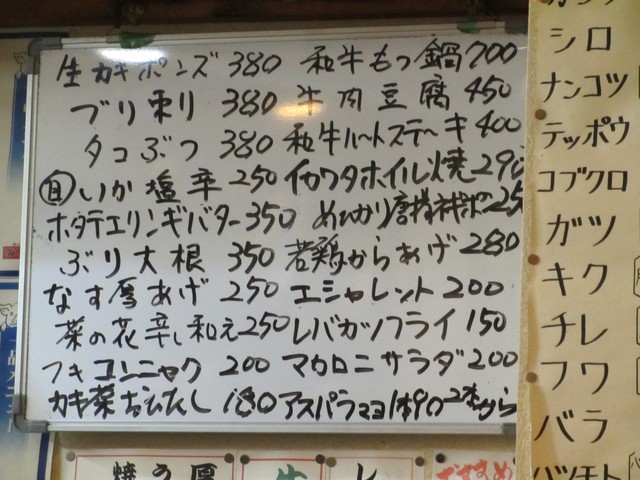 生カキポンズ 380 和牛もつ鍋 700
ブリ刺り 380 牛肉豆腐 450
タコぶつ 380 和牛ハートステーキ 400
自いか塩辛 250 イカワタホイル焼 290
ホタテエリンギバター 350 めひかり唐揚 25
ぶり大根 350 若鶏からあげ 280
なす厚あげ 250 エシャレット 200
菜の花辛し和え 250 レバカツフライ 150
フキコンニャク 200 マカロニサラダ 200
カキ菜おひたし 180 アスパラマヨ1本90 2本から
シロ
ナンコツ
テッポウ
コブクロ
ガツ
キク
チレ
フワ
バラ
ハツモト